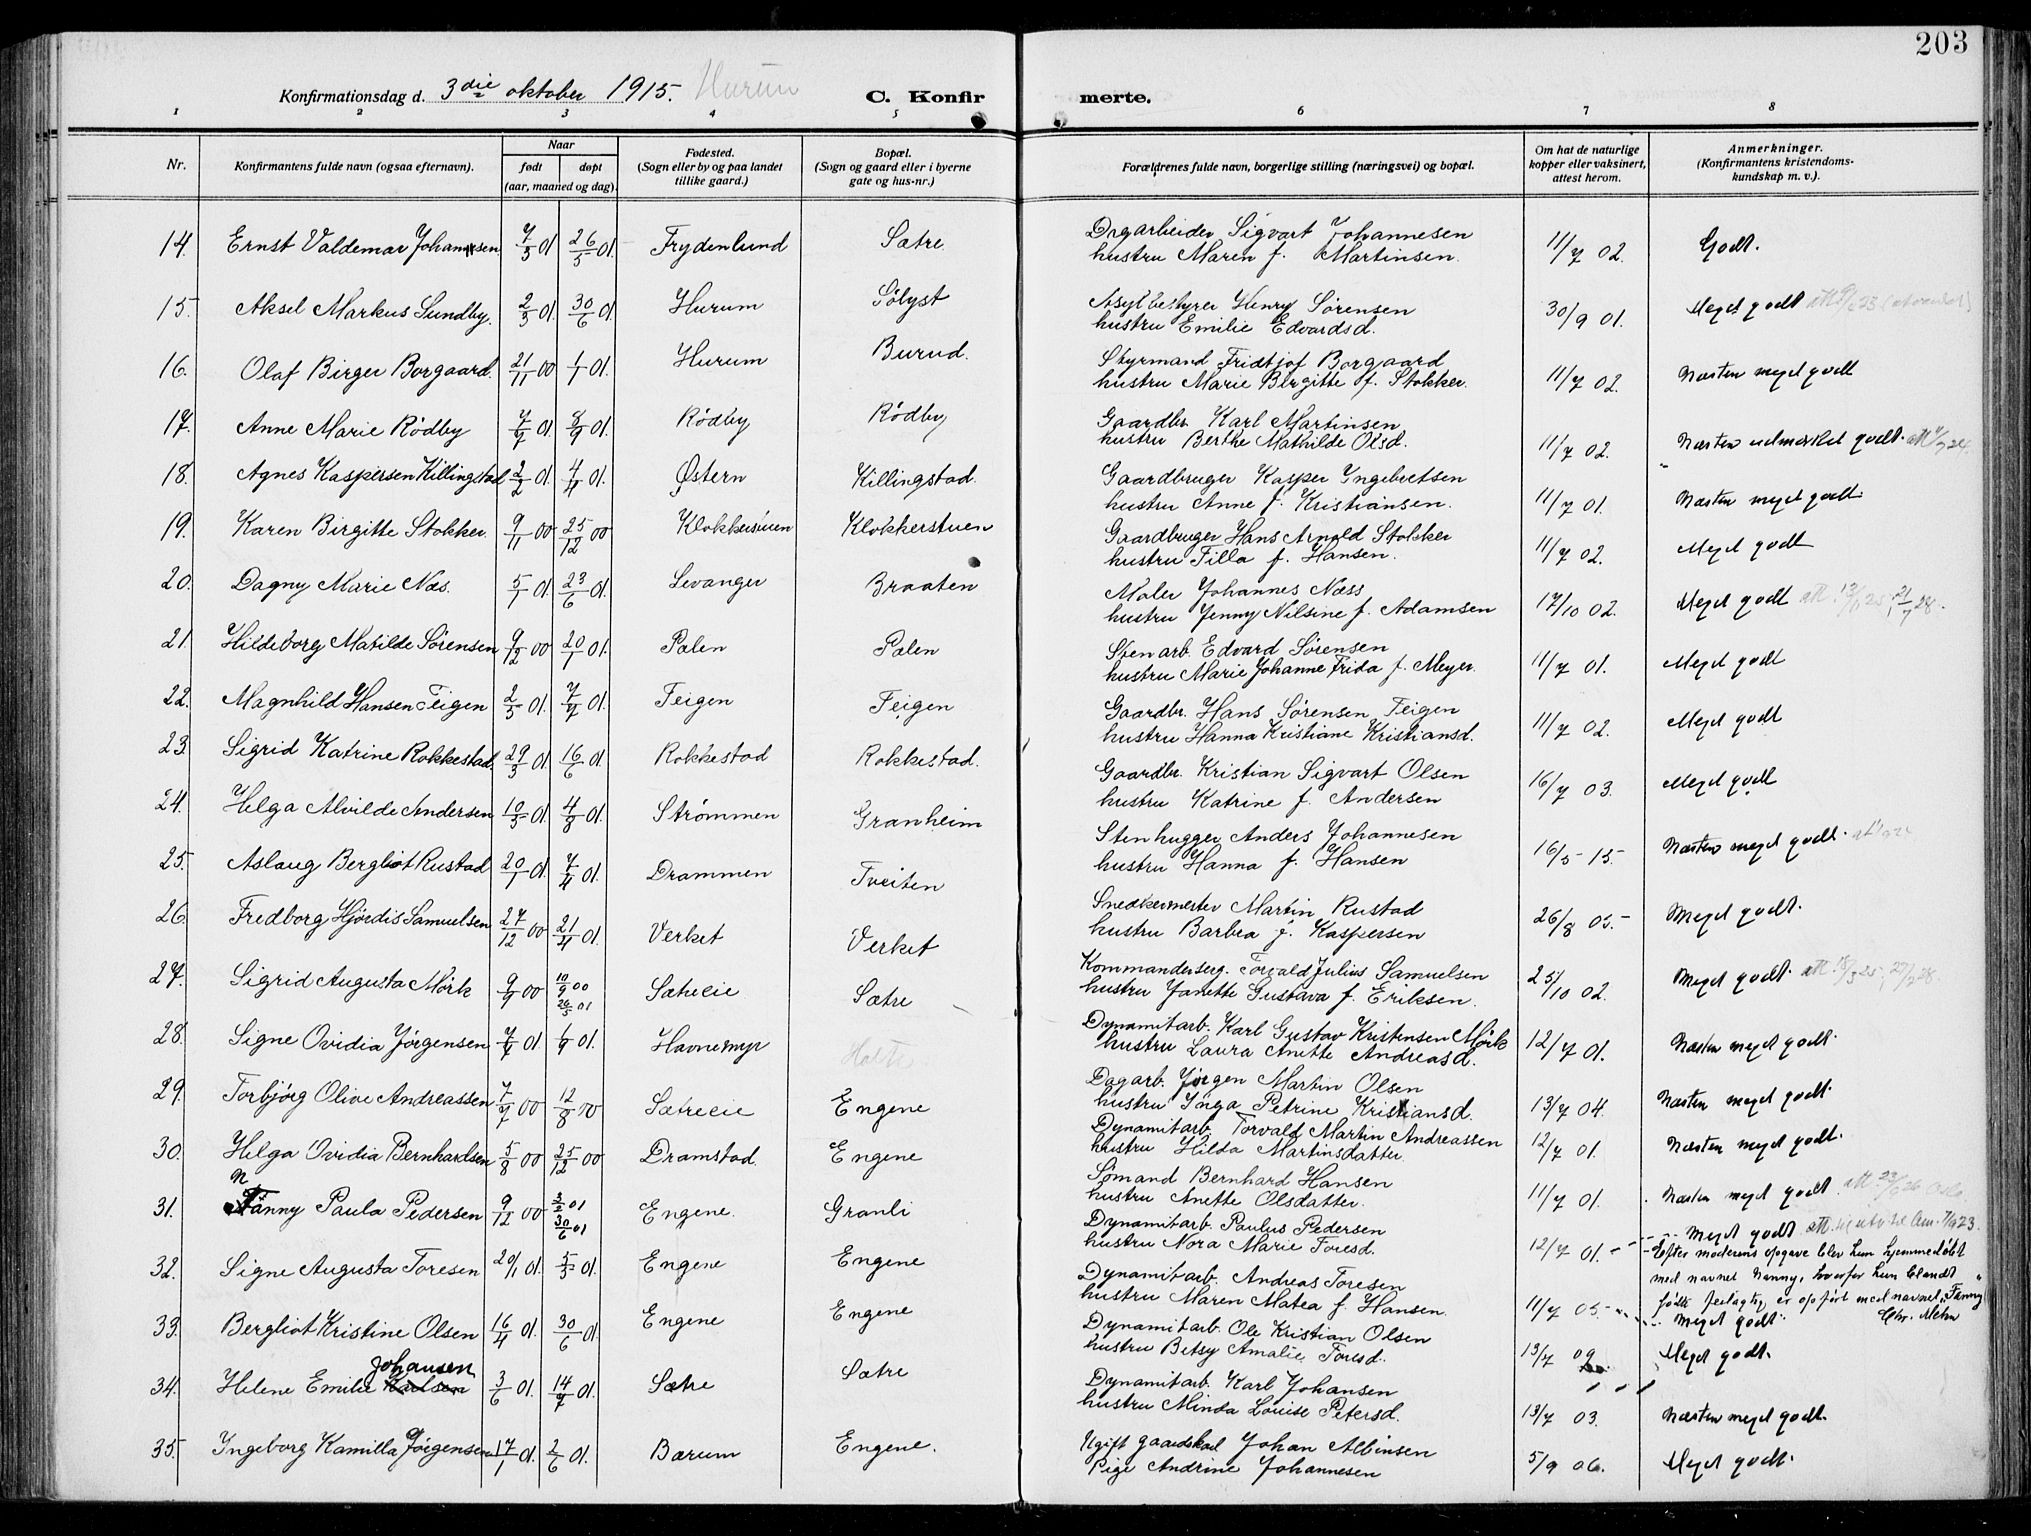 203
Konfirmationsdag d. 3die oktober 1915. Hurum C. Konfirmerte.
1 2 3 4 5 6 7 8
Nr. Konfirmantens fulde navn (ogsaa efternavn). Naar født døpt (aar, maaned og dag). Fødested. (Sogn eller by og paa landet tillike gaard.) Bopæl. (Sogn og gaard eller i byerne gate og hus-nr.) Forældrenes fulde navn, borgerlige stilling (næringsvei) og bopæl. Om hat de naturlige kopper eller vaksinert, attest herom. Anmerkninger. (Konfirmantens kristendomskundskap m. v.).
14. Ernst Valdemar Johannsen 7/3 01 26/5 01. Frydenlund Sætre Dagarbeider Sigvart Johannesen 11/7 02. Godt.
hustru Maren f. Martinsen.
15. Aksel Markus Sundby. 2/3 01. 30/6 01. Hurum Sølyst Asylbestyrer Henry Sørensen 30/9 01. Meget godt
hustru Emilie Edvardsd.
16. Olaf Birger Borgaard. 21/11 00 1/1 01. Hurum Burud. Styrmand Fridtjof Borgaard 11/7 02. Næsten meget godt
hustru Marie Birgitte f. Stokker.
17. Anne Marie Rødby 7/7 01. 8/9 01. Rødby Rødby Gaardbr. Karl Martinsen 11/7 02. Næsten udmerket godt.
hustru Berthe Mathilde Olsd.
18. Agnes Kaspersen Killingstad 2/2 01. 4/4 01. Østern Killingstad. Gaardbruger Kasper Yngebretsen 11/7 01. Næsten meget godt.
hustru Anne f. Kristiansen.
19. Karen Birgitte Stokker. 9/11 00 25/12 00 Klokkerstuen Klokkerstuen Gaardbruger Hans Arnold Stokker 11/7 02. Meget godt
hustru Tilla f. Hansen.
20. Dagny Marie Næs. 5/1 01. 23/6 01. Levanger Braaten Maler Johannes Næss 17/10 02. Meget godt
hustru Jenny Nilsine f. Adamsen
21. Hildeborg Matilde Sørensen 9/12 00 20/1 01. Palen Palen Stenarb. Edvard Sørensen 11/7 01. Meget godt
hustru Marie Johanne Frida f. Meyer.
22. Magnhild Hansen Feigen 2/3 01. 7/7 01. Feigen Feigen Gaardbr. Hans Sørensen Feigen 11/7 02. Meget godt
hustru Hanna Kristiane Kristiansd.
23. Sigrid Katrine Rokkestad. 29/3 01 16/6 01. Rokkestad Rokkestad. Gaardbr. Kristian Sigvart Olsen 16/7 03. Meget godt
hustru Katrine f. Andersen
24. Helga Alvilde Andersen 10/3 01. 4/8 01. Strømmen Granheim Stenhugger Anders Johannesen 16/5 15. Næsten meget godt.
hustru Hanna f. Hansen
25. Aslaug Bergliot Rustad 20/1 01. 7/4 01. Drammen Tveiten Snedkermester Martin Rustad 26/8 05. Meget godt.
hustru Barbra f. Kaspersen
26. Fredborg Hjørdis Samuelsen 27/12 00 21/4 01. Verket Verket Kommandersersg. Torvald Julius Samuelsen 25/10 02. Meget godt.
hustru Janette Gustava f. Eriksen.
27. Sigrid Augusta Mørk 9/9 00 10/9 00 26/5 01 Sætreeie Sætre Dynamitarb. Karl Gustav Kristensen Mørk 12/7 01. Næsten meget godt.
hustru Laura Anette Andreasd.
28. Signe Ovidia Jørgensen 7/7 01. 1/9 01. Havnemyr Holte Dagarb. Jørgen Martin Olsen 13/7 04. Næsten meget godt.
hustru Inga Petrine Kristiansd.
29. Torbjørg Olive Andreassen 7/7 00 12/8 00 Sætreeie Engene Dynamitarb. Torvald Martin Andreassen 12/7 01. Næsten meget godt.
hustru Hilda Martinsdatter.
30. Helga Ovidia Bernhardsen 5/8 00 25/12 00 Dramstad. Engene Sømand Bernhard Hansen 11/7 01. Næsten meget godt.
hustru Anette Olsdatter.
31. N Fanny Paula Pedersen 9/12 00 3/2 01 30/6 01 Engene. Granli Dynamitarb. Paulus Pedersen 12/7 01. Meget godt
hustru Nora Marie Toresd. Efter moderens opgave blev hun hjemmedøbt
med navnet Nanny, hvorfor hun blandt
fødte feilagtig er opført med navnet "Fanny"
32. Signe Augusta Toresen 20/1 01. 5/3 01. Engene Engene Dynamitarb. Andreas Toresen 11/7 05. Meget godt.
hustru Maren Matea f. Hansen.
33. Bergliot Kristine Olsen 16/4 01. 30/6 01. Engene Engene Dynamitarb. Ole Kristian Olsen 13/7 09 Meget godt.
hustru Betsy Amalie Toresd.
34. Helene Emilie Karlsen Johansen 3/6 01. 14/7 01. Sætre Sætre Dynamitarb. Karl Johansen 13/7 03. Næsten meget godt.
hustru Minda Louise Petersd.
35. Ingeborg Kamilla Jørgensen 17/1 01. 2/6 01. Bærum Engene. Ugift gaardskarl Johan Albinsen 5/9 06. Meget godt.
Pige Andrine Johannesen